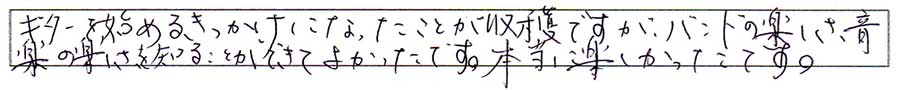 ギターを始めるきっかけになったことが収穫ですが、バンドの楽しさ、音
楽の楽しさを知ることができてよかったです。本当に楽しかったです。